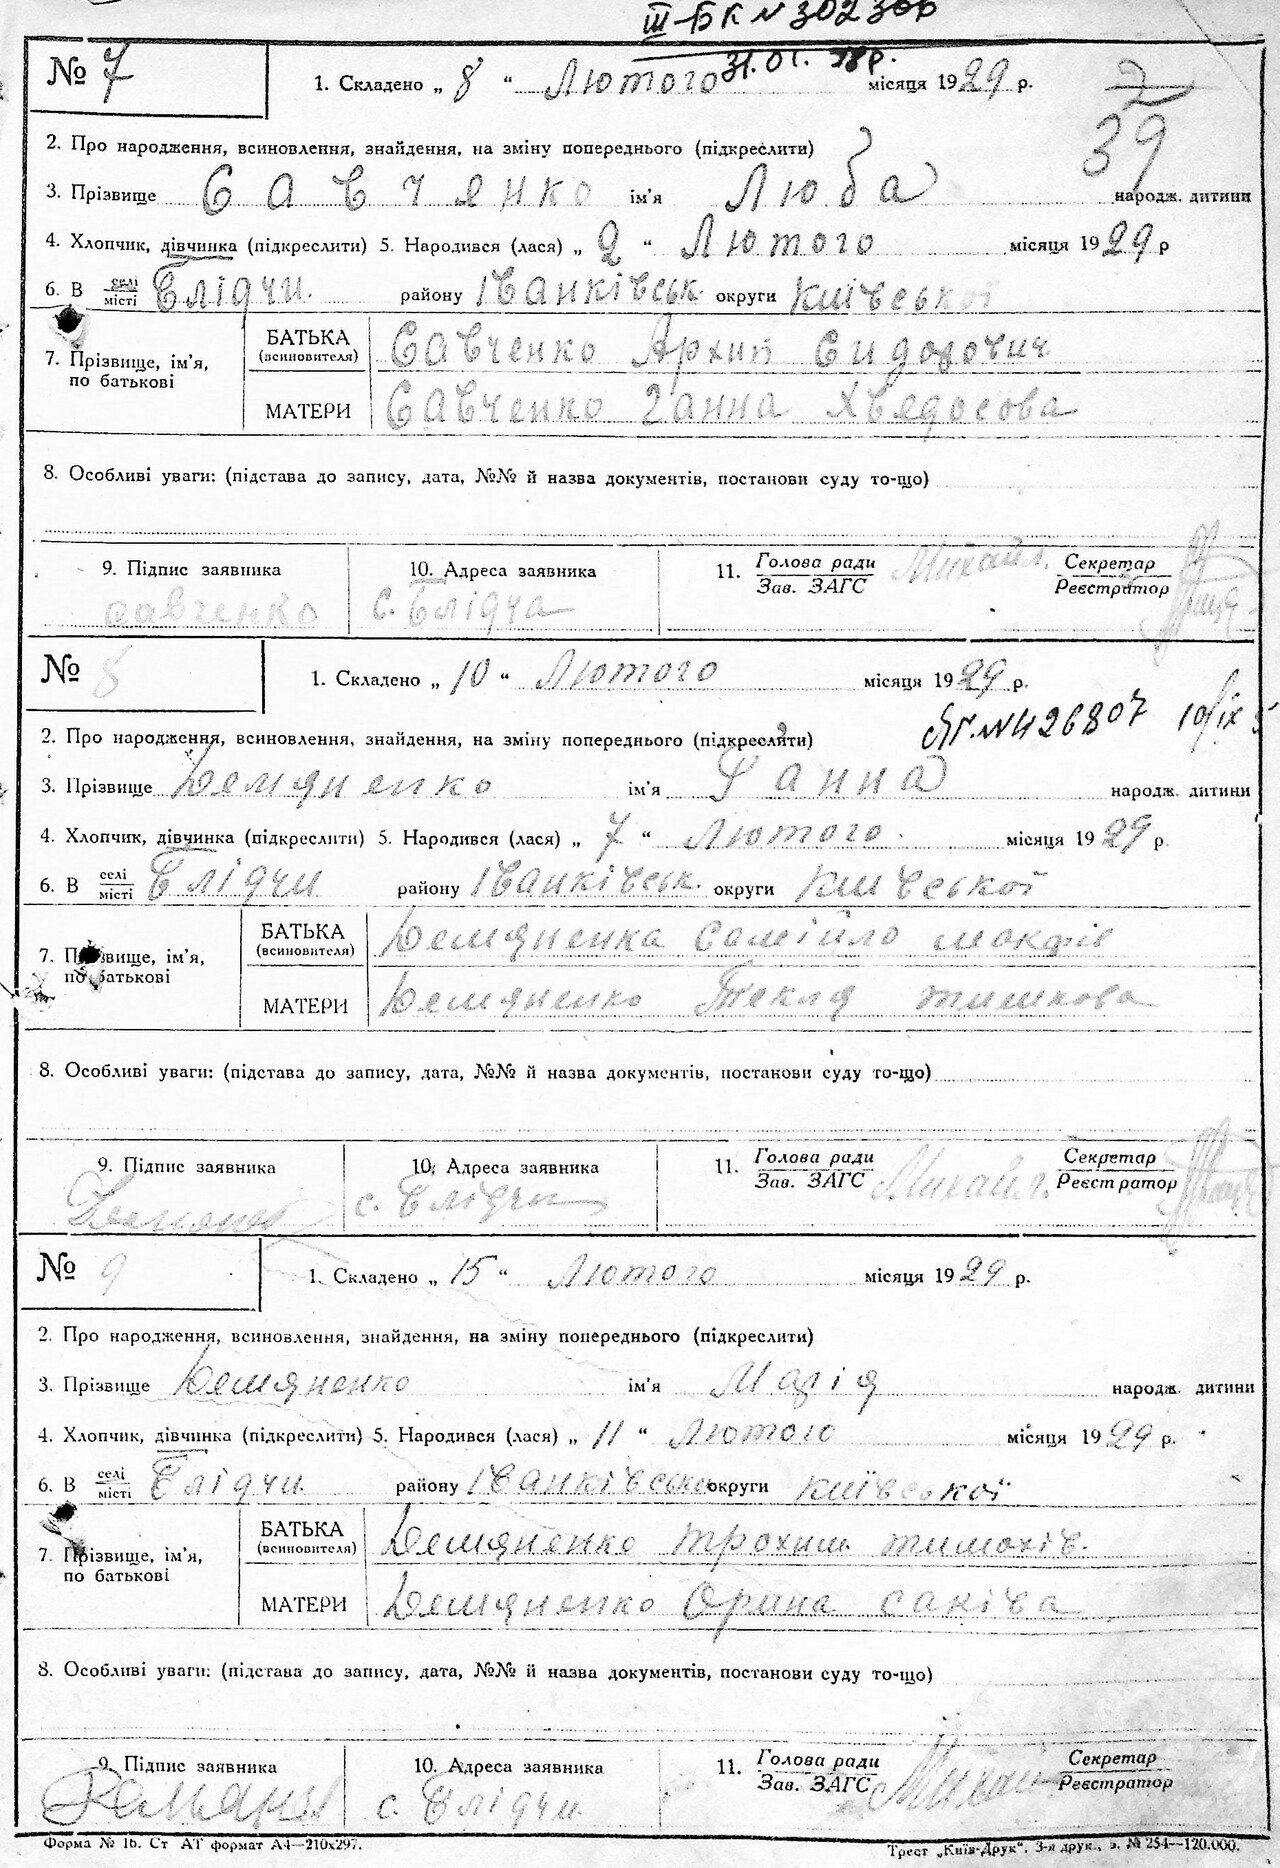 III-БК №302308
31.01.98р.
№ 7
1. Складено „ 8 “ Лютого місяця 1929 р.
2
39
2. Про народження, всиновлення, знайдення, на зміну попереднього (підкреслити)
3. Прізвище Савчянко ім'я Люба народж. дитини
4. Хлопчик, дівчинка (підкреслити) 5. Народився (лася) „ 2 “ Лютого місяця 1929 р
6. В селі місті Блідчи району Іванківськ. округи Київської
7. Прізвище, ім'я, по батькові
БАТЬКА (всиновителя) Савченко Архип Сидорович
МАТЕРИ Савченко Ганна Хведосова
8. Особливі уваги: (підстава до запису, дата, №№ й назва документів, постанови суду то-що)
9. Підпис заявника 10. Адреса заявника 11. Голова ради Зав. ЗАГС Михайл. Секретар Реєстратор
савченко с. Блідча
№ 8
1. Складено „ 10 “ Лютого місяця 1929 р.
№426807
2. Про народження, всиновлення, знайдення, на зміну попереднього (підкреслити)
3. Прізвище Демяненко ім'я Ганна народж. дитини
4. Хлопчик, дівчинка (підкреслити) 5. Народився (лася) „ 7 “ Лютого місяця 1929 р.
6. В селі місті Блідчи району Іванківськ. округи Київської
7. Прізвище, ім'я, по батькові
БАТЬКА (всиновителя) Демяненка Самійло
МАТЕРИ Демяненко Текля тишкова
8. Особливі уваги: (підстава до запису, дата, №№ й назва документів, постанови суду то-що)
9. Підпис заявника 10. Адреса заявника 11. Голова ради Зав. ЗАГС Михайл. Секретар Реєстратор
с. Блідчи
№ 9
1. Складено „ 15 “ Лютого місяця 1929 р.
2. Про народження, всиновлення, знайдення, на зміну попереднього (підкреслити)
3. Прізвище Демяненко ім'я Марія народж. дитини
4. Хлопчик, дівчинка (підкреслити) 5. Народився (лася) „ 11 “ Лютого місяця 1929 р.
6. В селі місті Блідчи району Іванківської округи Київської
7. Прізвище, ім'я, по батькові
БАТЬКА (всиновителя) Демяненко трохим тимохів.
МАТЕРИ Демяненко Орина саківа
8. Особливі уваги: (підстава до запису, дата, №№ й назва документів, постанови суду то-що)
9. Підпис заявника 10. Адреса заявника 11. Голова ради Зав. ЗАГС Секретар Реєстратор
с. Блідчи
Форма № 1б. Ст АТ формат А4—210х297.
Трест „Київ-Друк“. 3-я друк., з. № 254—120.000.